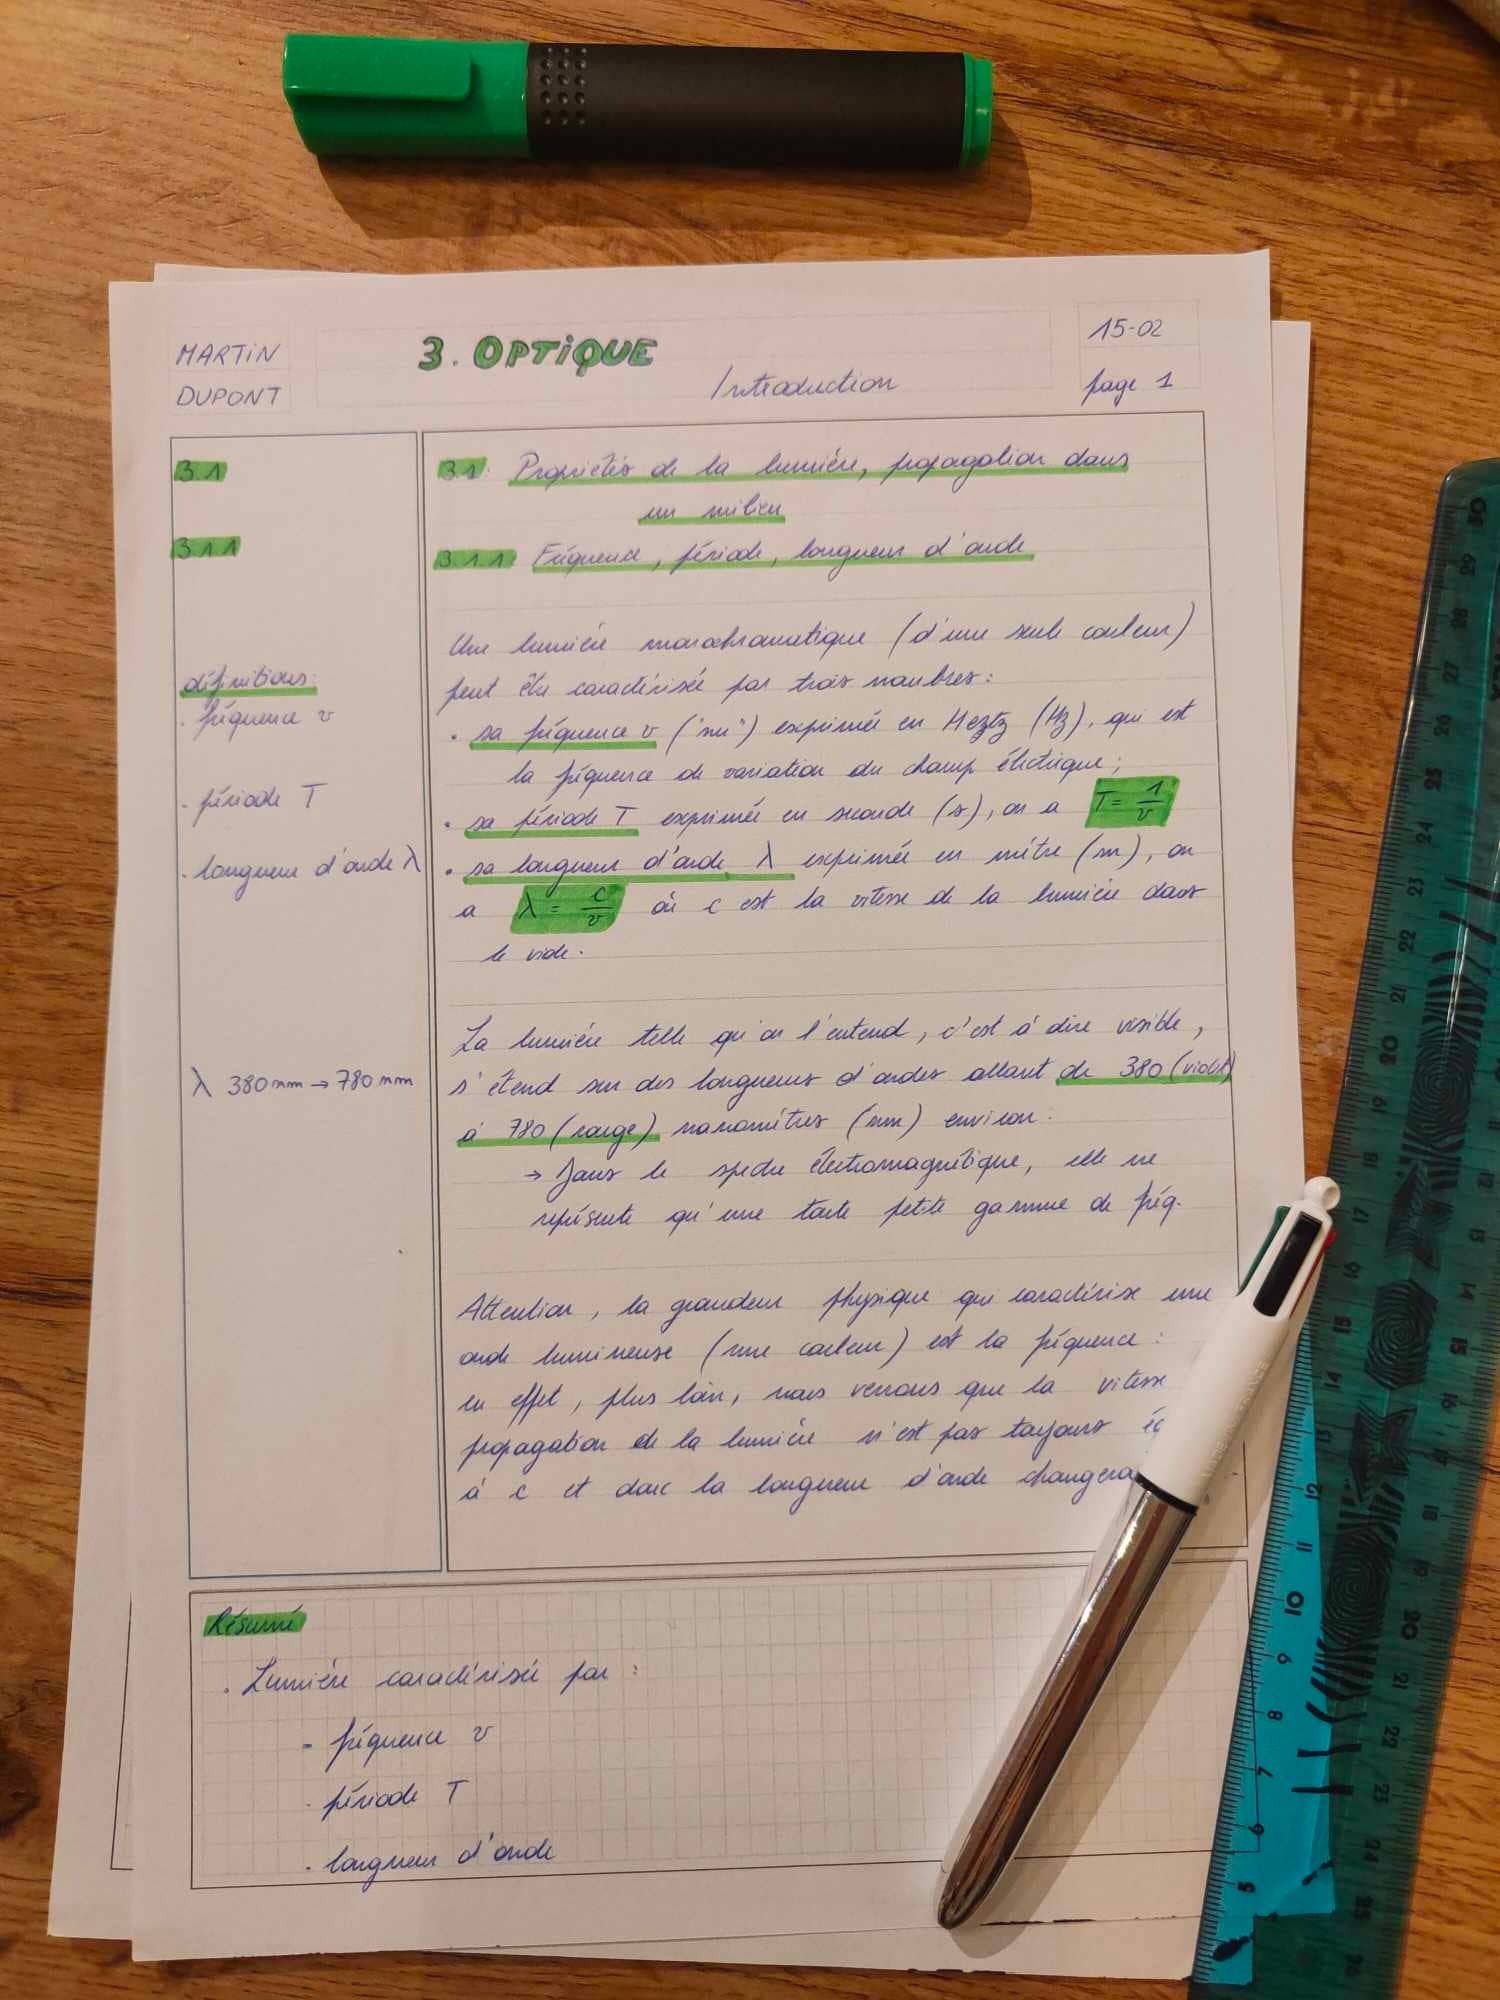 MARTIN
DUPONT
3. OPTIQUE
Introduction
15-02
page 1
3.1
3.1.1
définitions:
. fréquence ν
. période T
. longueur d'onde λ
λ 380nm → 780nm
3.1: Propriétés de la lumière, propagation dans
un milieu
3.1.1: Fréquence, période, longueur d'onde
Une lumière monochromatique (d'une seule couleur)
peut être caractérisée par trois nombres:
. sa fréquence ν ("nu") exprimée en Hertz (Hz), qui est
la fréquence de variation du champ électrique;
. sa période T exprimée en seconde (s), on a T = 1/ν
. sa longueur d'onde λ exprimée en mètre (m), on
a λ = c/ν où c est la vitesse de la lumière dans
le vide.
La lumière telle qu'on l'entend, c'est à dire visible,
s'étend sur des longueurs d'ondes allant de 380 (violet)
à 780 (rouge) nanomètres (nm) environ.
→ Dans le spectre électromagnétique, elle ne
représente qu'une toute petite gamme de fréq.
Attention, la grandeur physique qui caractérise une
onde lumineuse (une couleur) est la fréquence:
en effet, plus loin, nous verrons que la vitesse
propagation de la lumière n'est pas toujours ég
à c et donc la longueur d'onde changera
Résumé
. Lumière caractérisée par:
- fréquence ν
. période T
. longueur d'onde
30
29
28
27
26
25
24
23
22
21
20
19
18
17
16
15
14
13
12
11
10
9
8
7
6
5